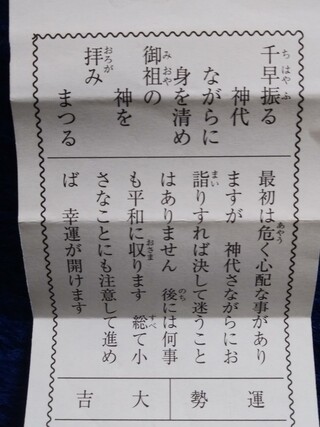 千早振る
神代
ながらに
身を清め
御祖の
神を
拝み
まつる
最初は危く心配な事があり
ますが 神代さながらにお
詣りすれば決して迷うこと
はありません 後には何事
も平和に収ります 総て小
さなことにも注意して進め
ば 幸運が開けます
運勢
大吉